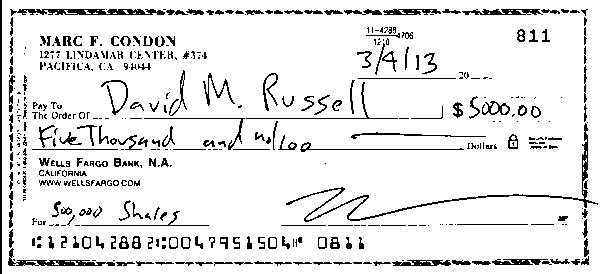 MARC F. CONDON
1277 LINDAMAR CENTER, #374
PACIFICA, CA 94044
11-4288
1210
4706
811
3/4/13
20
Pay To
The Order Of David M. Russell $ 5000.00
Five Thousand and no/100 Dollars
WELLS FARGO BANK, N.A.
CALIFORNIA
WWW.WELLSFARGO.COM
For 500,000 Shares
MP
⑆121042882⑆0047951504⑈ 0811